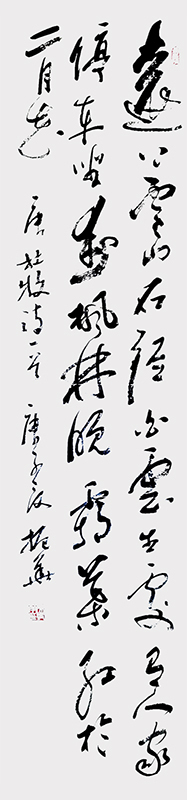 遠上寒山石徑斜白雲生處有人家
停車坐愛楓林晚霜葉紅於
二月花 唐杜牧詩一首 庚子夏 振華